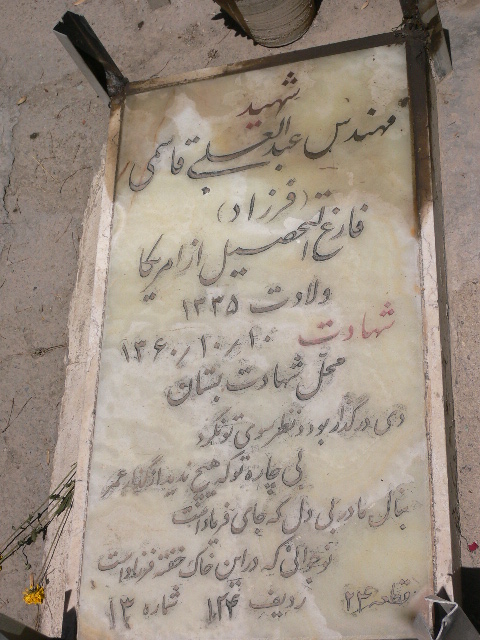 شهید
مهندس عبدالعلی قاسمی
(فرزاد)
فارغ التحصیل از امریکا
ولادت ۱۳۳۵
شهادت ۱۳۶۰/۱۰/۲۰
محل شهادت بستان
دمی در گذر بود و نظر سوی تو نکرد
بی چاره تو که هیچ ندید از گلزار عمر
بنال مادر بی دل که جای فریاد است
نوجوانی که در این خاک خفته فرزاد است
قطعه ۲۴ ردیف ۱۲۴ شماره ۱۳